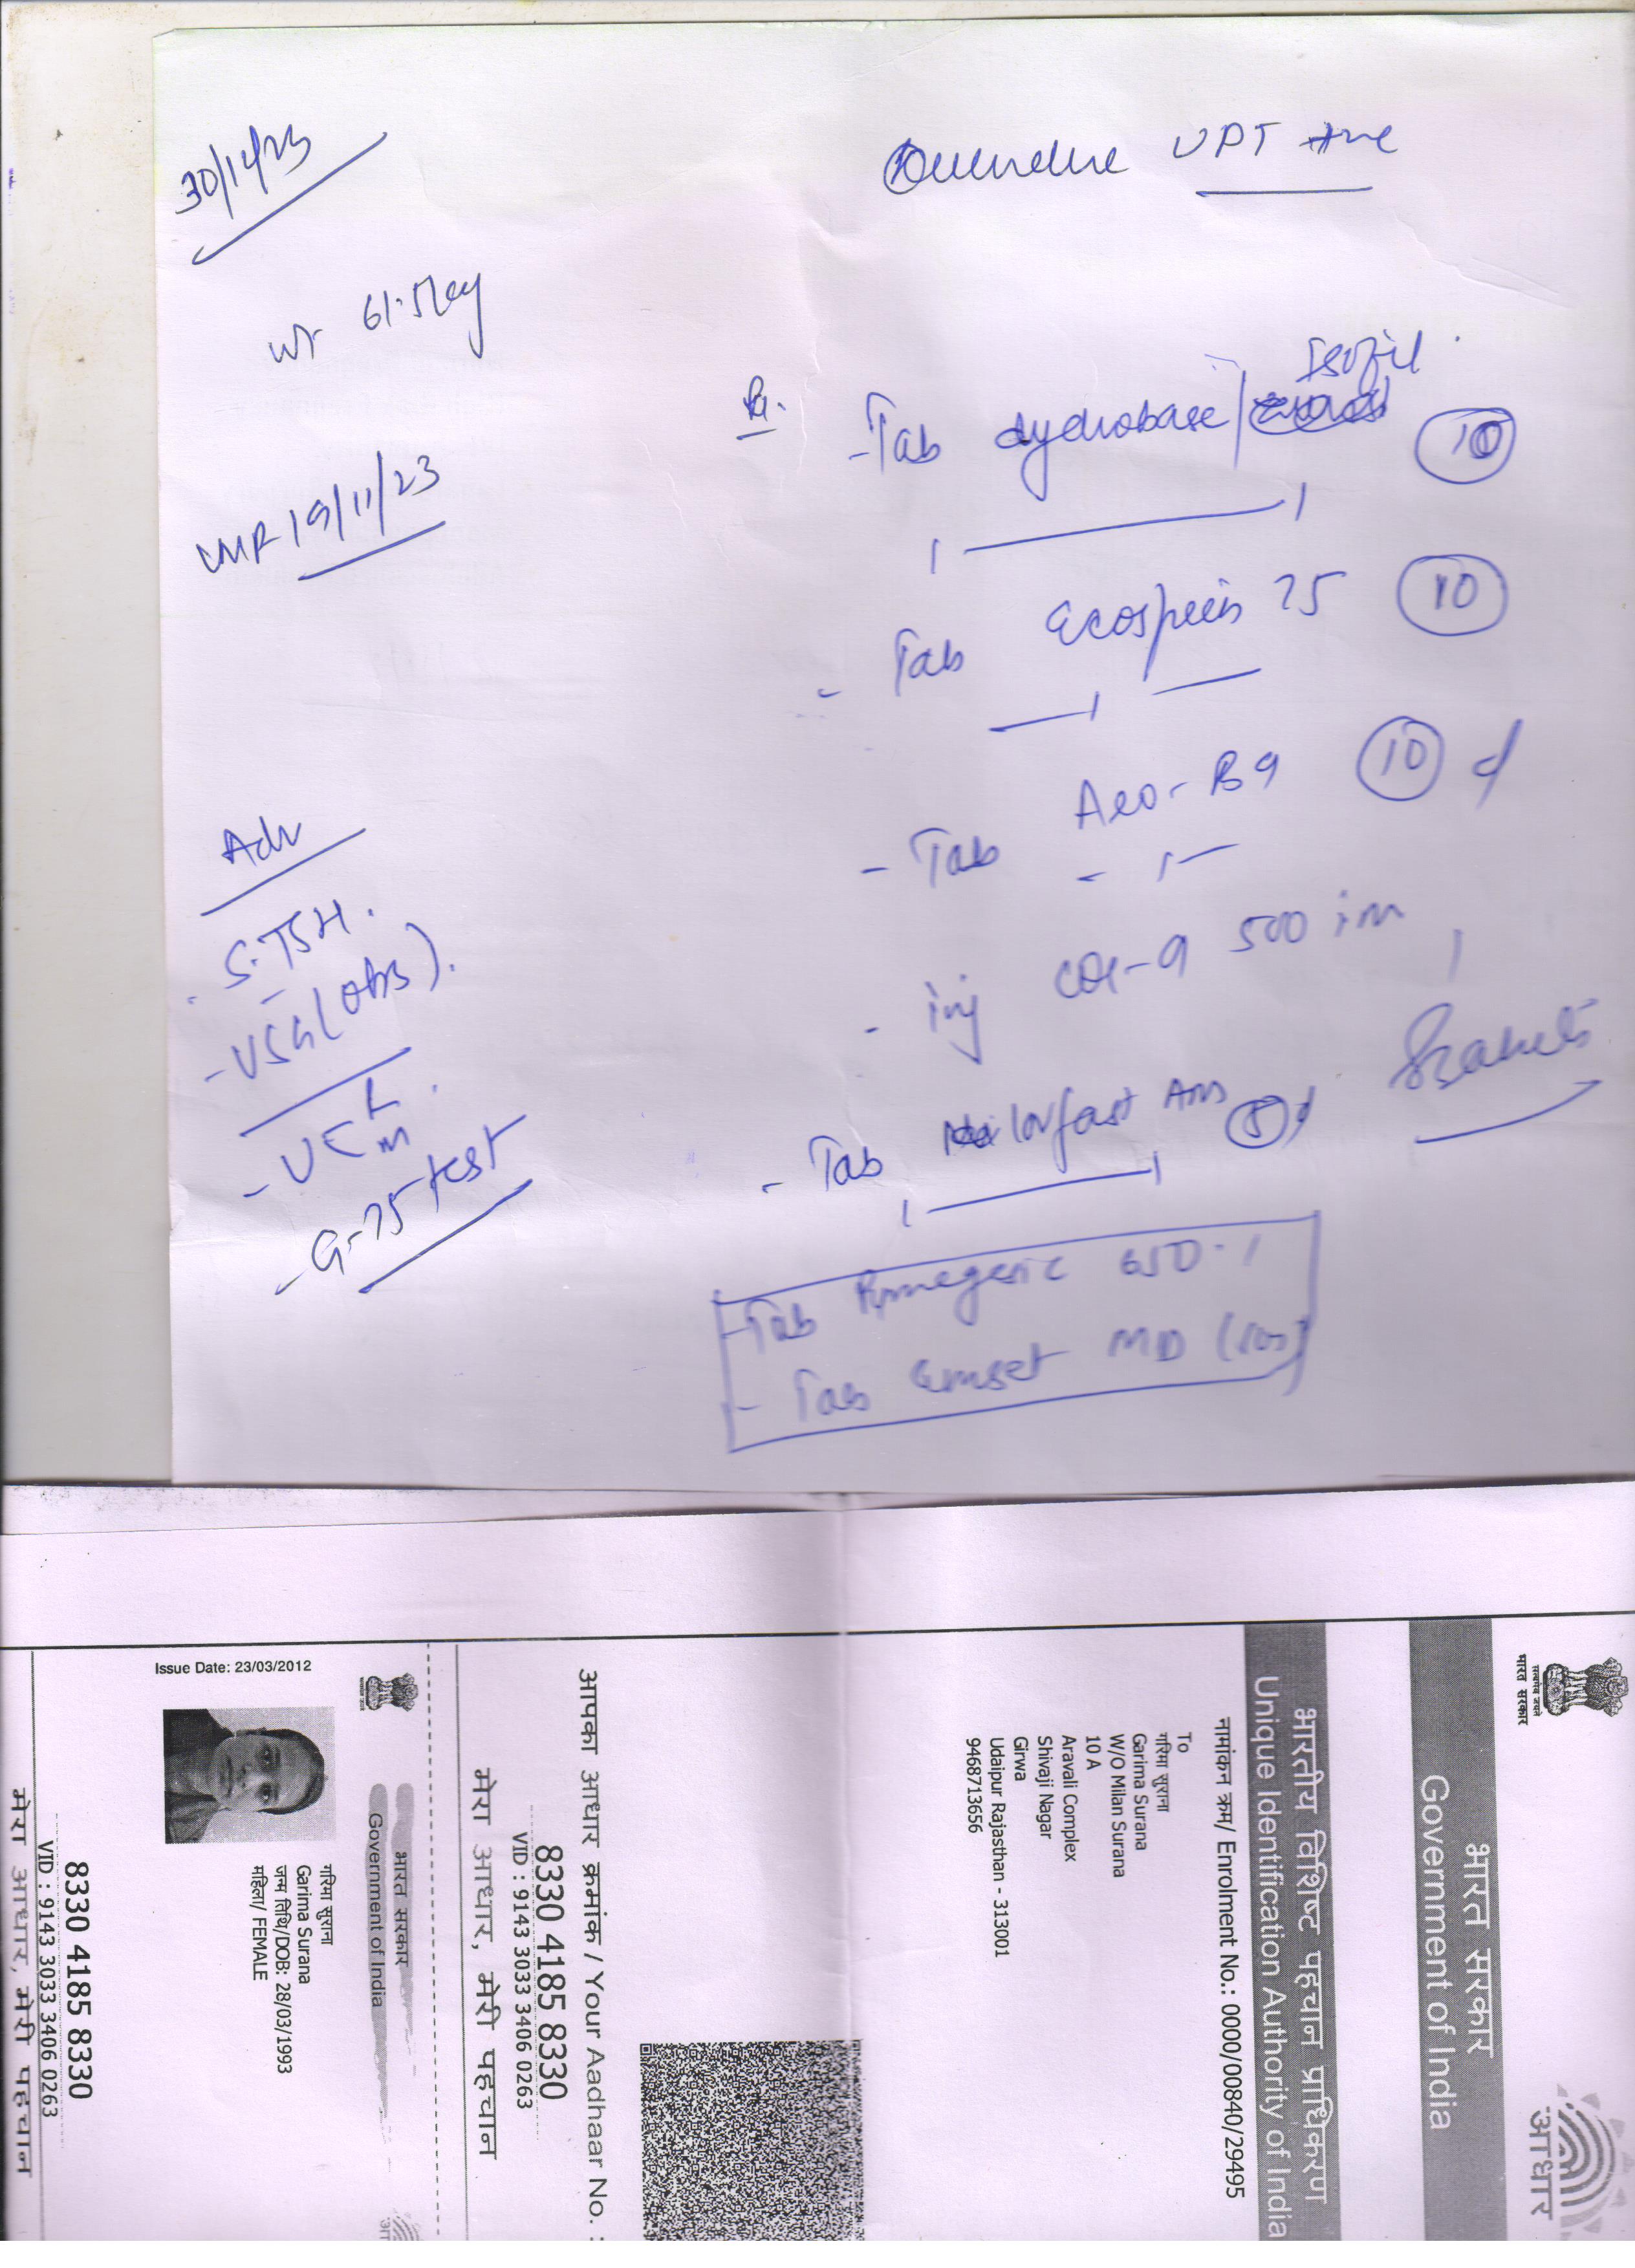 30/12/23
UPT +ve
wt 61.5 kg
Isofil
Rx.
- Tab dydrobase/
10
LMP 19/11/23
- Tab Ecosprin 75 10
- Tab Aeo-B9 10 d
Adv
- S.TSH.
- inj 500 im
- USG (obs).
- Tab Ans 5 d
- G-75 test
- Tab 650
- Tab Emset MD (sos)
भारत सरकार
Government of India
भारतीय विशिष्ट पहचान प्राधिकरण
Unique Identification Authority of India
नामांकन क्रम/ Enrolment No.: 0000/00840/29495
To
गरिमा सुराना
Garima Surana
W/O Milan Surana
10 A
Aravali Complex
Shivaji Nagar
Girwa
Udaipur Rajasthan - 313001
9468713656
आपका आधार क्रमांक / Your Aadhaar No. :
8330 4185 8330
VID : 9143 3033 3406 0263
मेरा आधार, मेरी पहचान
भारत सरकार
Government of India
Issue Date: 23/03/2012
गरिमा सुराना
Garima Surana
जन्म तिथि/DOB: 28/03/1993
महिला/ FEMALE
8330 4185 8330
VID : 9143 3033 3406 0263
मेरा आधार, मेरी पहचान
सत्यमेव जयते
भारत सरकार
आधार